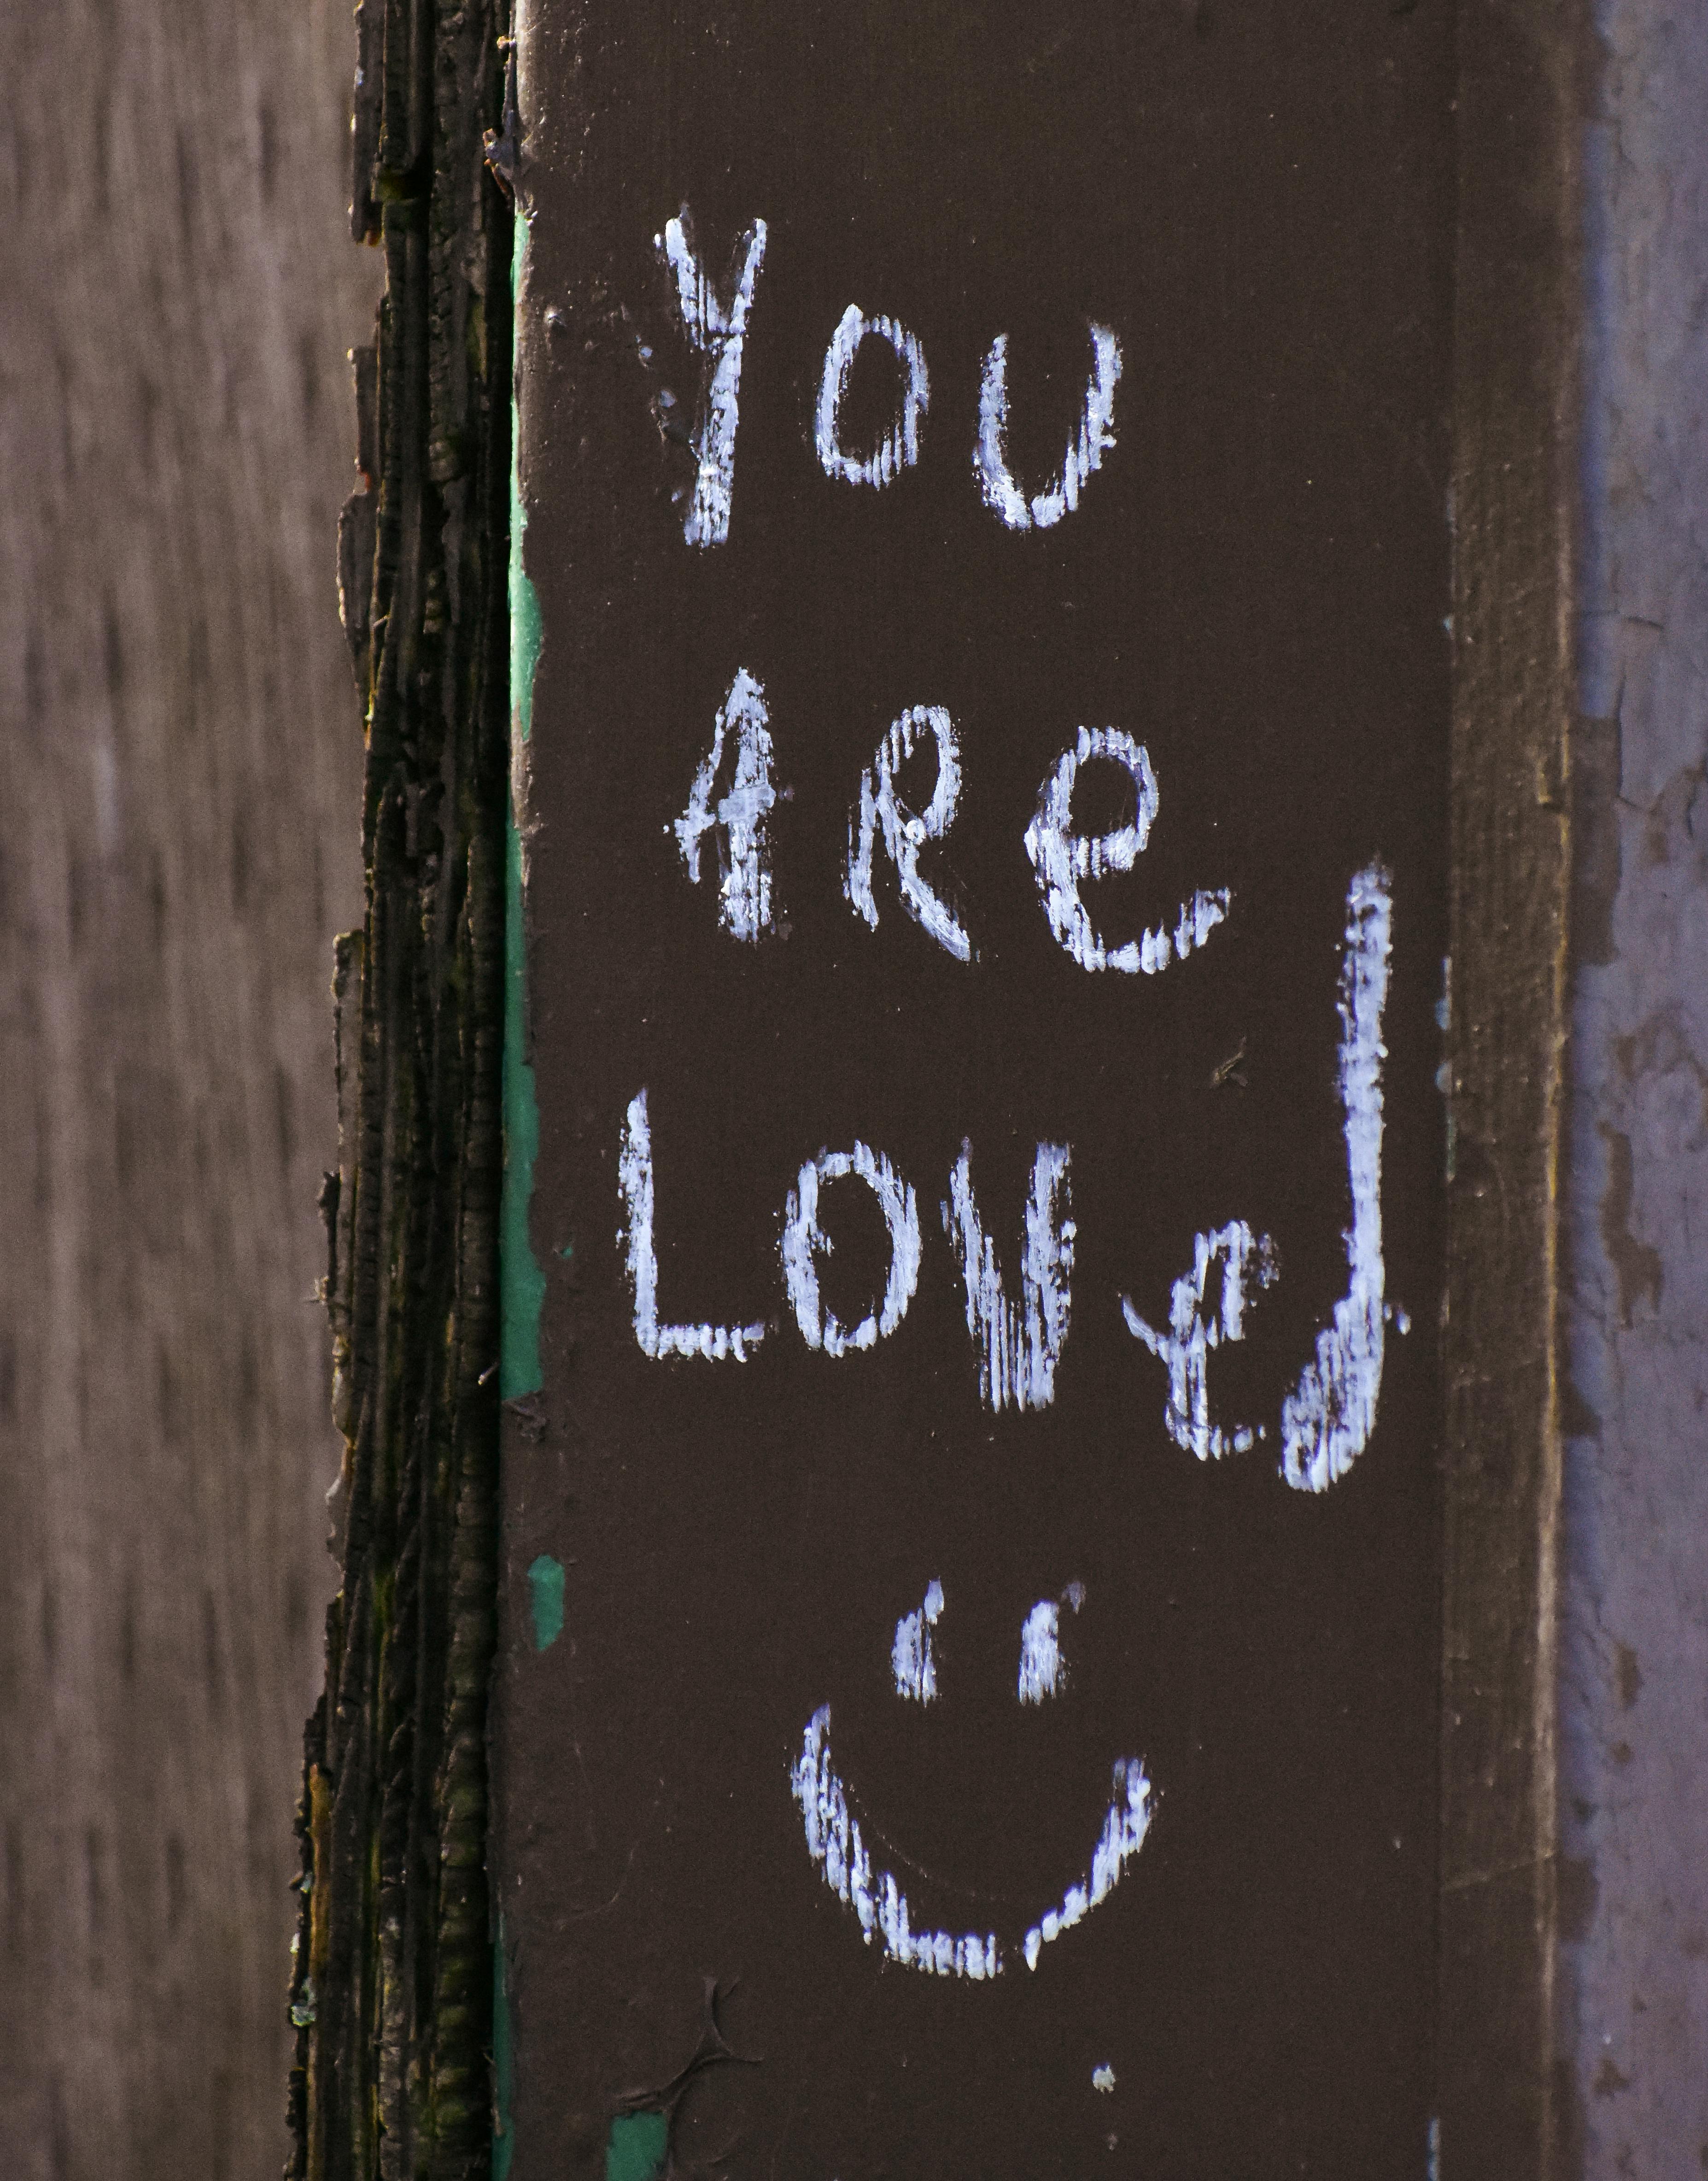 You
ARe
LOVed